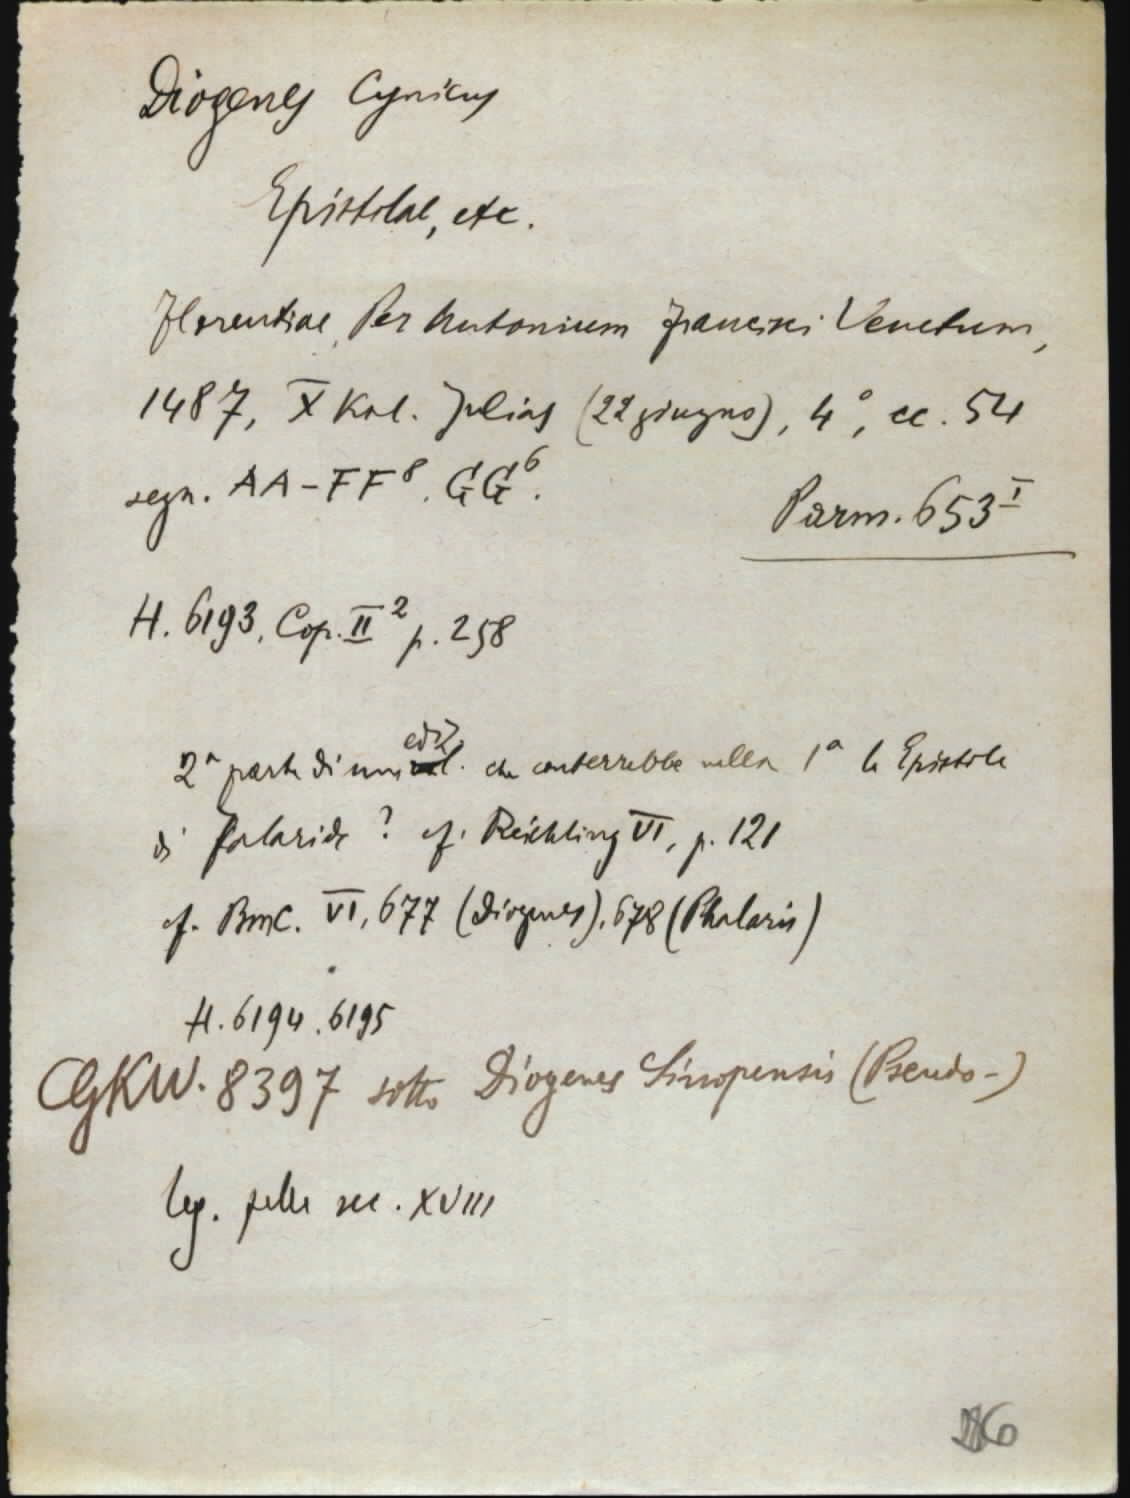 Diogenes Cynicus
Epistolae, etc.
Florentiae, Per Antonium Francisci Venetum,
1487, X Kal. Julias (22 giugno), 4°, cc. 54
segn. AA-FF⁸. GG⁶.
Parm. 653ᴵ
H. 6193, Cop. II² p. 258
2ª parte di una ediz. che conterrebbe nella 1ª le Epistole
di Falaride ? cf. Reichling VI, p. 121
cf. BMC. VI, 677 (Diogenes), 678 (Phalaris)
H. 6194. 6195
GKW. 8397 sotto Diogenes Sinopensis (Pseudo-)
leg. pelle sec. XVIII